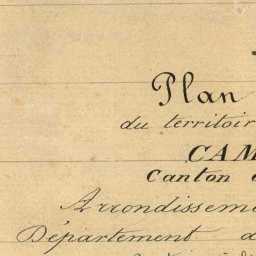 Plan
du territoir
CAM
Canton
Arrondisseme
Département d